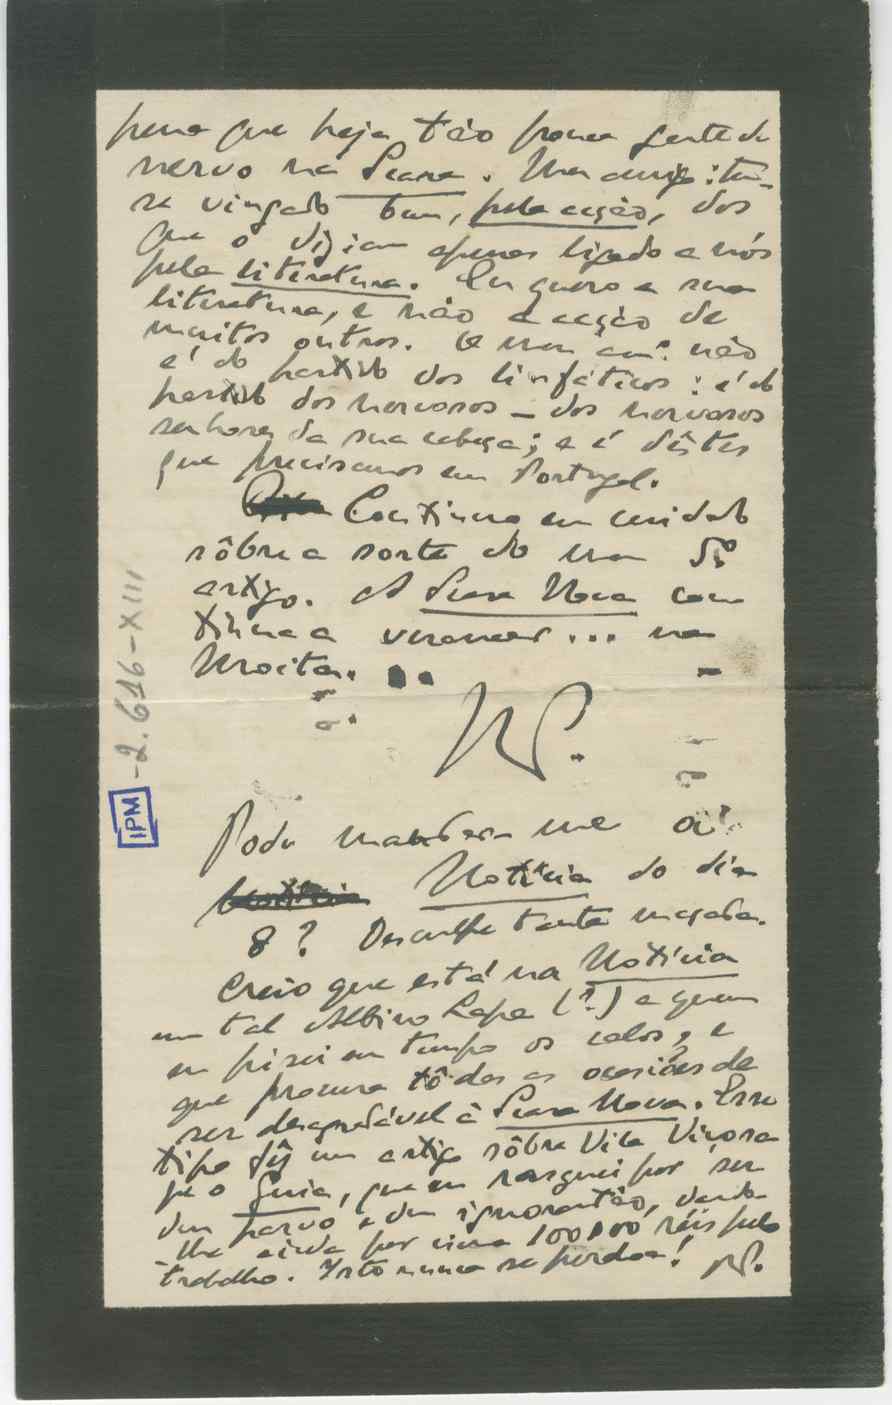 pena que haja tão pouca gente de
nervo na Seara. Meu amigo: tem-
se vingado bem, pela acção, dos
que o diziam apenas ligado a nós
pela literatura. Eu quero a sua
literatura, e não a acção de
muitos outros. O meu am.º não
é do partido dos linfáticos: é do
partido dos nervosos — dos nervosos
senhores da sua cabeça; e é dêstes
que precisamos em Portugal.
Continuo em cuidado
sôbre a sorte do meu
artigo. A Seara Nova con
tinua a veranear... na
Moita.
RP.
Pode mandar-me a
Notícia do dia
8? Desculpe tanta maçada.
Creio que está na Notícia
um tal Albino Lapa (?) a quem
eu pisei em tempo os calos, e
que procura tôdas as ocasiões de
ser desagradável à Seara Nova. Esse
tipo fêz um artigo sôbre Vila Viçosa
pª o Guia, que eu rasguei por ser
dum parvo e dum ignorantão, dando-
lhe ainda por cima 100000 réis pelo
trabalho. Isto nunca se perdoa! RP.
IPM -2.616-XIII